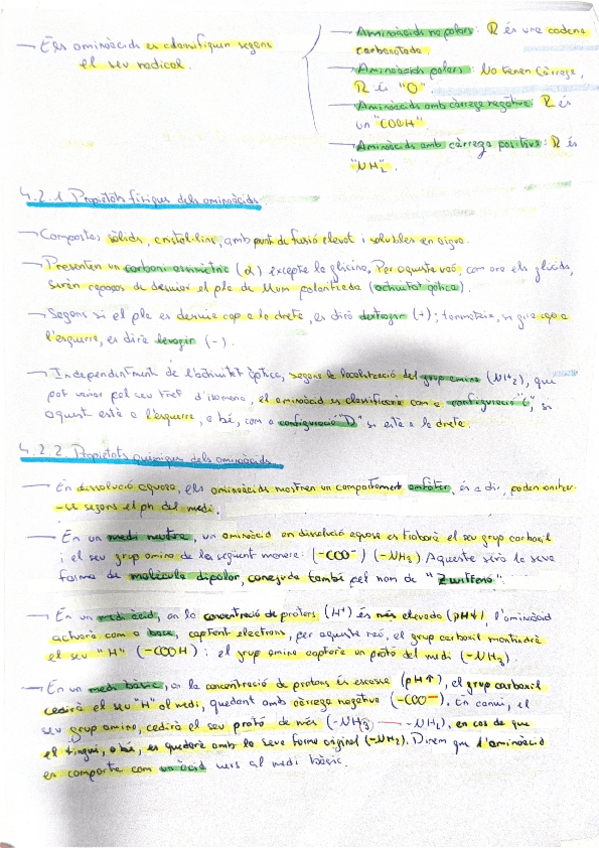 — Els aminoàcids es classifiquen segons
el seu radical.
— Aminoàcids no polars: R és una cadena
carbonatada.
— Aminoàcids polars: No tenen càrrega,
R és "O".
— Aminoàcids amb càrrega negativa: R és
un "COOH".
— Aminoàcids amb càrrega positiva: R és
"NH2".
4.2.1 Propietats físiques dels aminoàcids
— Compostos sòlids, cristal·lins, amb punt de fusió elevat i solubles en aigua.
— Presenten un carboni asimètric (α) excepte la glicina. Per aquesta raó, com ara els glúcids,
seràn capaços de desviar el pla de llum polaritzada (activitat òptica).
— Segons si el pla es desvia cap a la dreta, es dirà dextrogir (+); tanmateix, si gira cap a
l'esquerra, es dirà levogir (-).
— Independentment de l'activitat òptica, segons la localització del grup amino (NH2), que
pot variar pel seu tret d'isomeria, el aminoàcid es classificaria com a configuració "L", si
aquest està a l'esquerra, o bé, com a configuració "D" si està a la dreta.
4.2.2. Propietats químiques dels aminoàcids
— En dissolució aquosa, els aminoàcids mostren un comportament amfòter, és a dir, poden ionitzar-
-se segons el ph del medi.
— En un medi neutre, un aminoàcid en dissolució aquosa es trobarà el seu grup carboxil
i el seu grup amino de la següent manera: (-COO⁻) (-NH3) Aquesta serà la seva
forma de molècula dipolar, coneguda també pel nom de "Zwitterió".
— En un medi àcid, on la concentració de protons (H⁺) és més elevada (pH↓), l'aminoàcid
actuarà com a base, captant electrons, per aquesta raó, el grup carboxil mantindrà
el seu "H" (-COOH) i el grup amino captarà un protó del medi (-NH3).
— En un medi bàsic, on la concentració de protons és escassa (pH↑), el grup carboxil
cedirà el seu "H" al medi, quedant amb càrrega negativa (-COO⁻). En canvi, el
seu grup amino, cedirà el seu protó de més (-NH3 — -NH2), en cas de que
el tingui, o bé, es quedarà amb la seva forma original (-NH2). Direm que l'aminoàcid
es comporta com un àcid vers al medi bàsic.